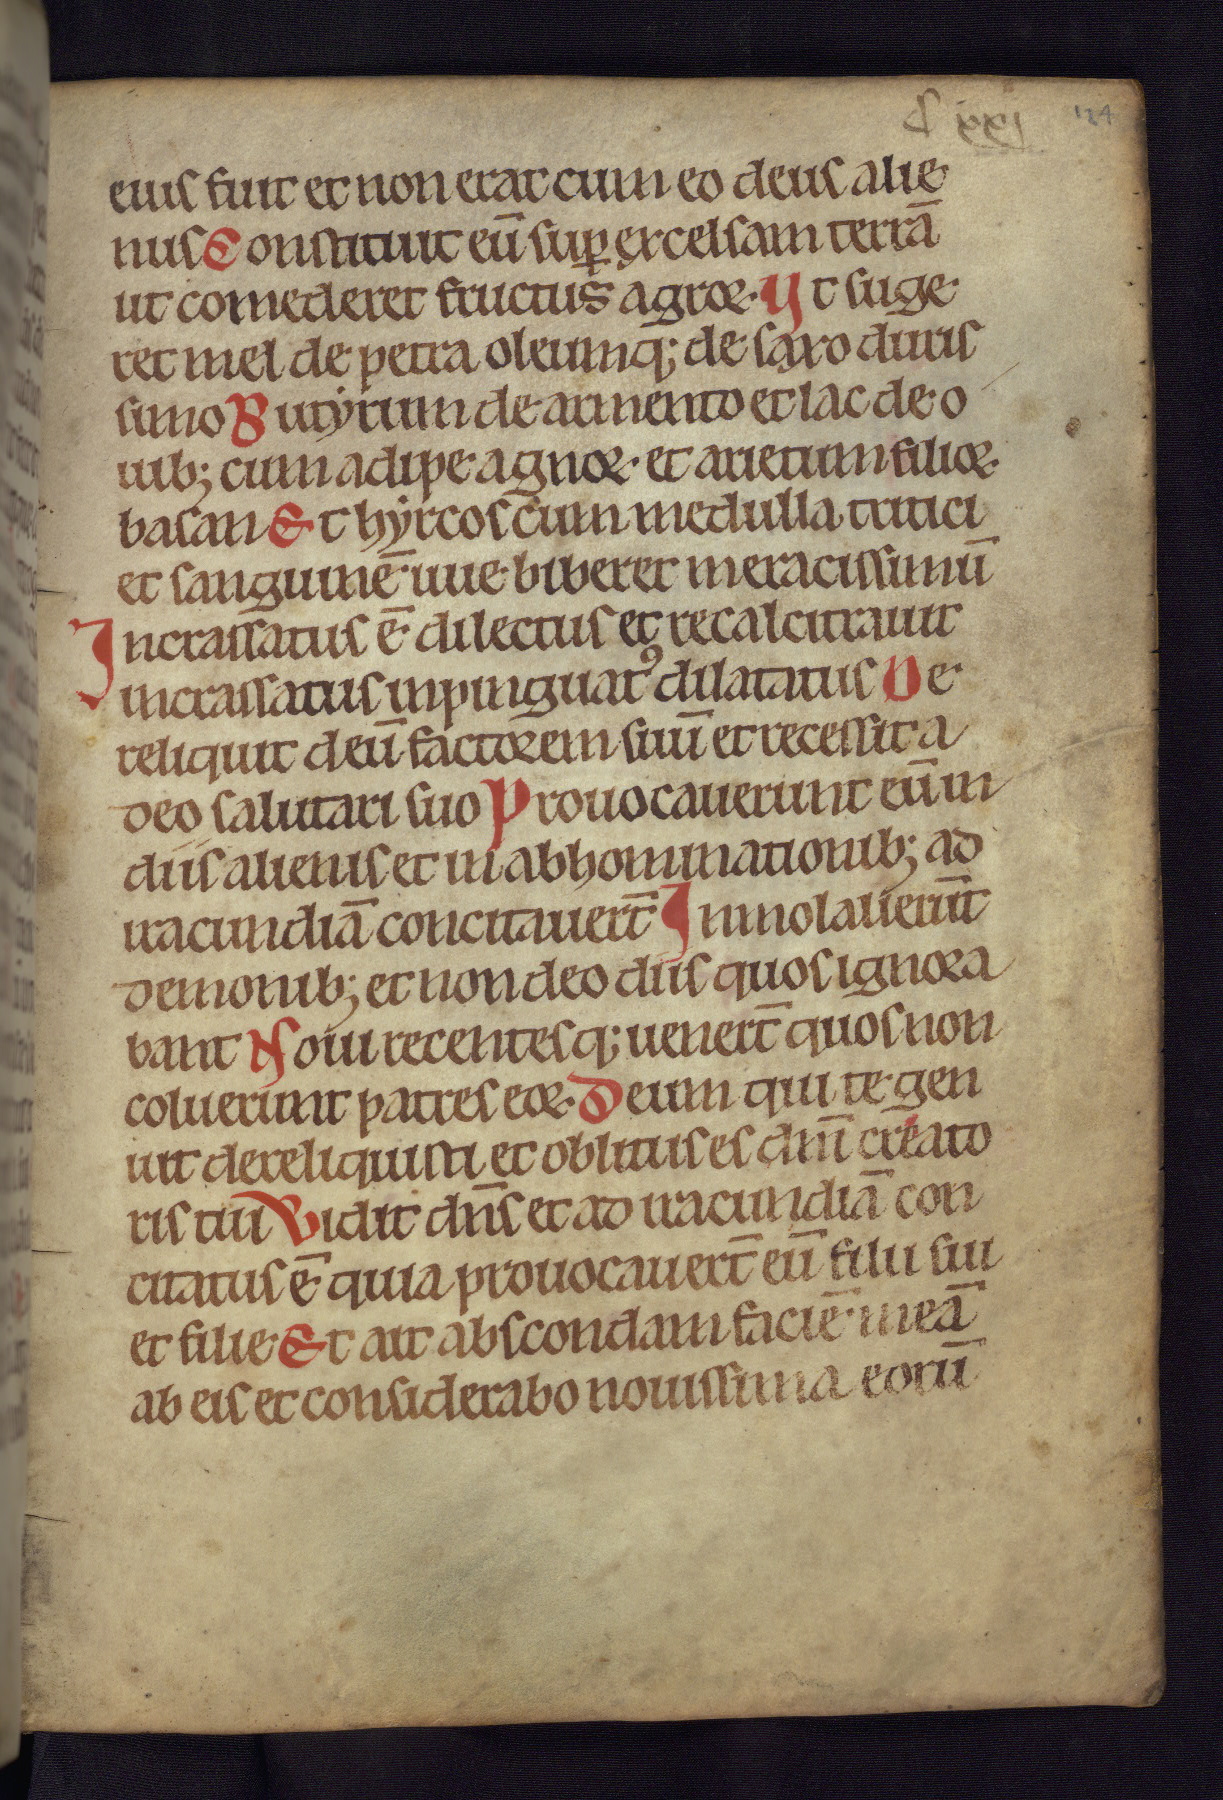 C xxj 124
eius fuit et non erat cum eo deus alie
nus Constituit eū sup̱ excelsam terrā
ut comederet fructus agroꝝ. Ut suge
ret mel de petra oleumq; de saxo duris
simo Butyrum de armento et lac de o
uib; cum adipe agnoꝝ. et arietum filioꝝ.
basan Et hyrcos cum medulla tritici
et sanguinē uue biberet meracissimū
Incrassatus ē dilectus et recalcitrauit
incrassatus inpinguat᾿ dilatatus De
reliquit deū factorem suū et recessit a
deo salutari suo Prouocauerunt eū in
diis alienis et in abhominationib; ad
iracundiā concitauert̄ Inmolauerūt
demonib; et non deo diis quos ignora
bant Noui recentesq; uenert̄ quos non
coluerunt patres eoꝝ. Deum qui te gen
uit dereliquisti et oblitus es dn̄i creato
ris tui Vidit dn̄s et ad iracundiā con
citatus ē quia prouocauert̄ eū filii sui
et filie Et ait abscondam faciē meā
ab eis et considerabo nouissima eorū